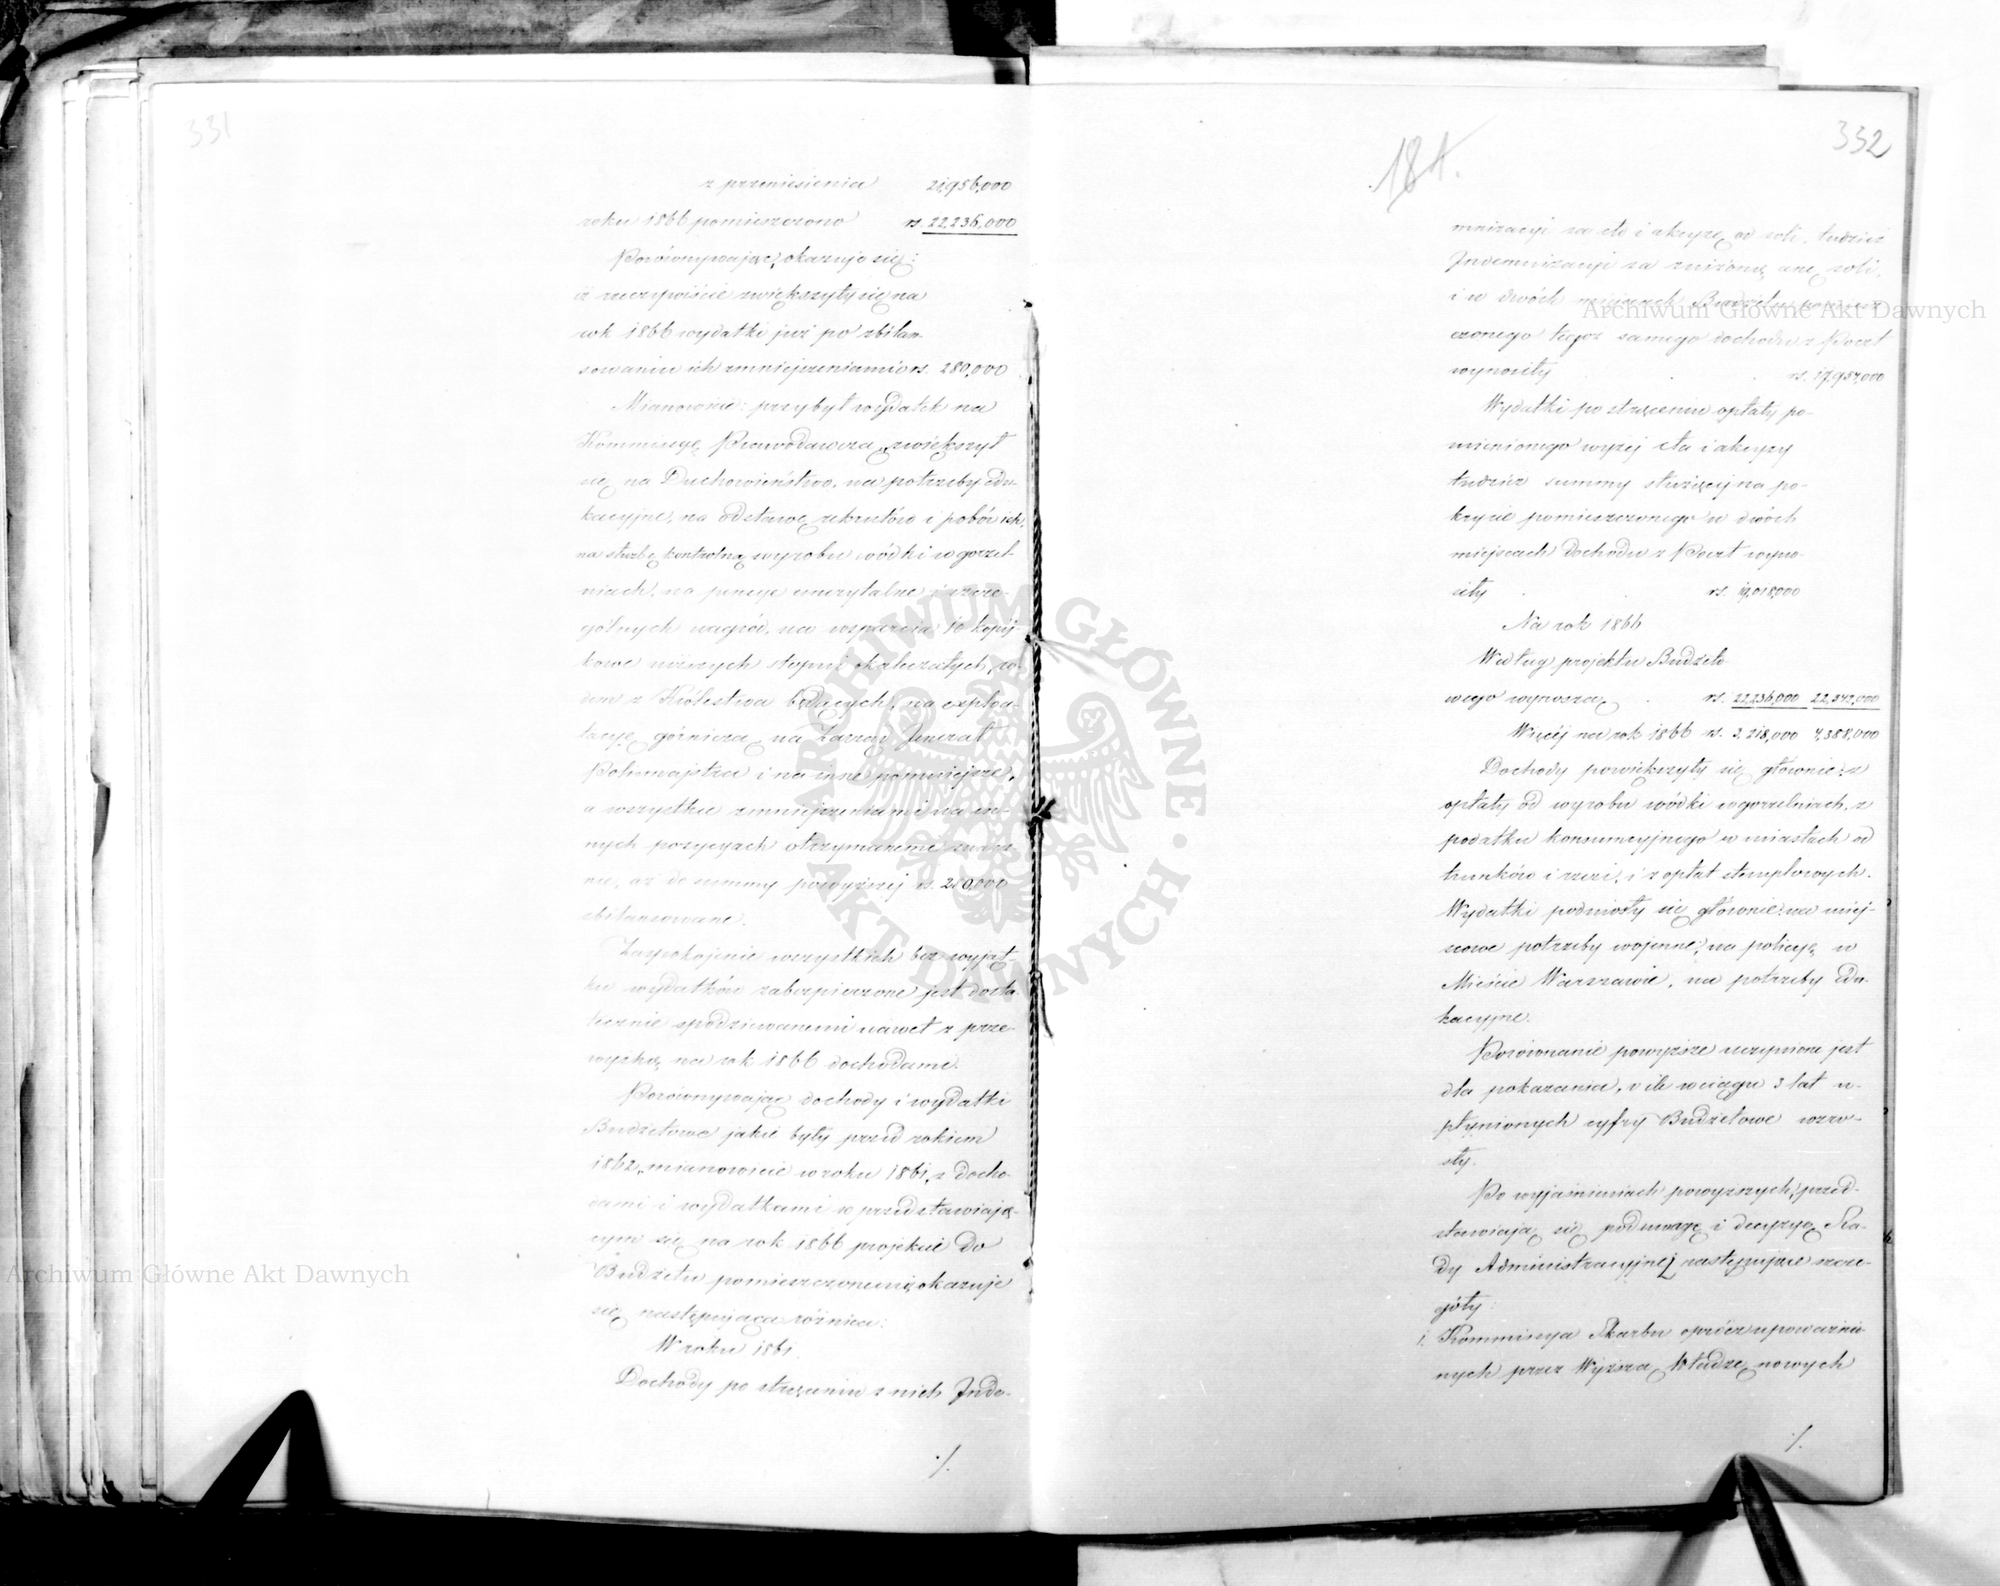 331
z przeniesienia 21,956,000
roku 1866 pomieszczono rs. 22,236,000
Porównywając, okazuje się:
iż rzeczywiście zwiększyły się na
rok 1866 wydatki już po zbilan-
sowaniu ich zmniejszeniami rs. 280,000
Mianowicie: przybył wydatek na
Kommissyę Prawodawczą, zwiększył
się na Duchowieństwo, na potrzeby edu-
kacyjne, na odstawę rekrutów i pobór ich,
na służbę kontrolną wyrobu wódki w gorzel-
niach, na pensye emerytalne i szcze-
gólnych nagród, na wsparcia 10 kopij-
kowe niższych stopni okaleczałych, ro-
dem z Królestwa będących, na exploa-
tacyę górniczą, na Zarząd Jenerał
Policmajstra i na inne pomniejsze,
a wszystkie zmniejszeniami na in-
nych pozycyach otrzymanemi
nie, aż do summy powyższej rs. 280,000
zbilansowane.
Zaspokojenie wszystkich bez wyjąt-
ku wydatków zabezpieczone jest dosta-
tecznie spodziewanemi nawet z prze-
wyżką na rok 1866 dochodami.
Porównywając dochody i wydatki
Budżetowe jakie były przed rokiem
1862, mianowicie w roku 1861, z docho-
dami i wydatkami w przedstawiają-
cym się na rok 1866 projekcie do
Budżetu pomieszczonemi, okazuje
się następująca różnica:
W roku 1861.
Dochody po strąceniu z nich Inde-
./.
184.
332
mnizacyi za cło i akcyzę od soli, tudzież
Indemnizacyi za zniżoną cenę soli,
i w dwóch miejscach Budżetu pomiesz-
czonego tegoż samego dochodu z Poczt
wynosiły rs. 17,954,000
Wydatki po strąceniu opłaty po-
mienionego wyżej cła i akcyzy
tudzież summy służącej na po-
krycie pomieszczonego w dwóch
miejscach dochodu z Poczt wyno-
siły rs. 19,018,000
Na rok 1866
Według projektu Budżeto-
wego wynoszą rs. 22,236,000 22,342,000
Więcéj na rok 1866 rs. 3,218,000 4,388,000
Dochody powiększyły się głównie: z
opłaty od wyrobu wódki w gorzelniach, z
podatku konsumcyjnego w miastach od
trunków i rzezi, i z opłat stemplowych.
Wydatki podniosły się głównie: na miej-
scowe potrzeby wojenne, na policyę w
Mieście Warszawie, na potrzeby edu-
kacyjne.
Porównanie powyższe uczynione jest
dla pokazania, o ile w ciągu 3 lat u-
płynionych cyfry Budżetowe wzro-
sły.
Po wyjaśnieniach powyższych, przed-
stawiają się pod uwagę i decyzyę Ra-
dy Administracyjnej następujące szcze-
góły:
1. Kommissya Skarbu oprócz upoważnio-
nych przez Wyższą Władzę nowych
./.
ARCHIWUM GŁÓWNE AKT DAWNYCH
Archiwum Główne Akt Dawnych
Archiwum Główne Akt Dawnych